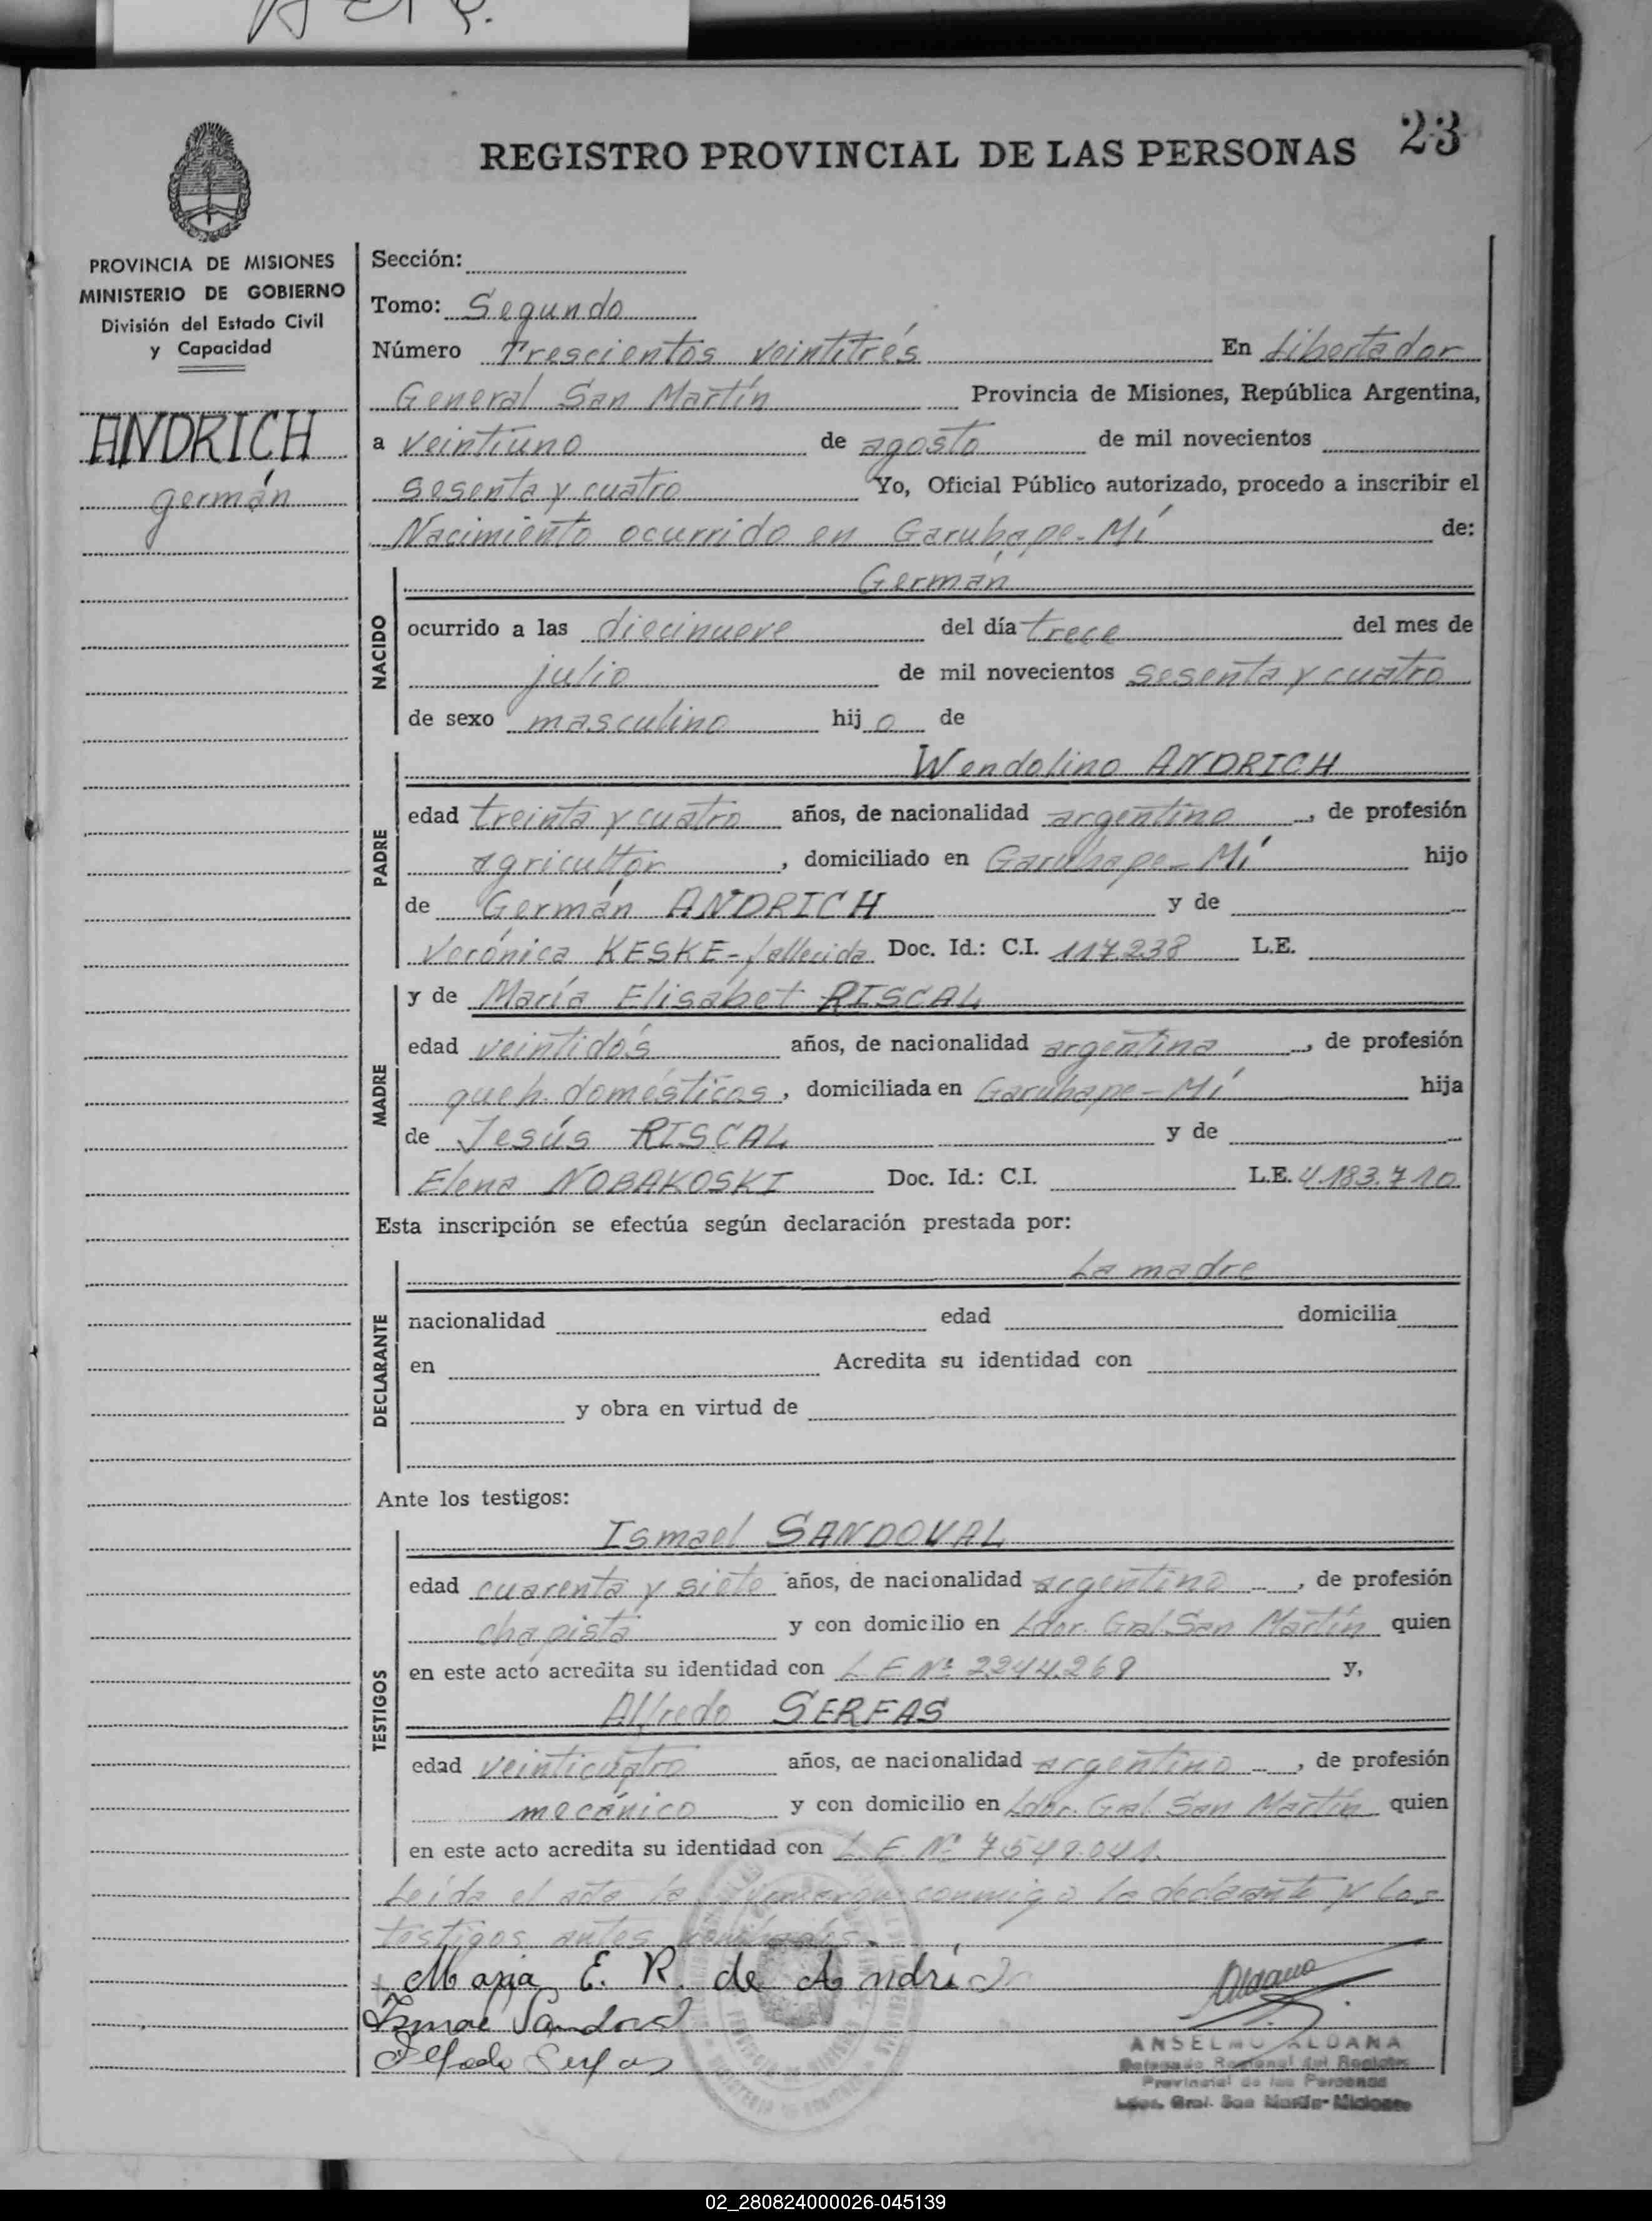 23
REGISTRO PROVINCIAL DE LAS PERSONAS
PROVINCIA DE MISIONES
MINISTERIO DE GOBIERNO
División del Estado Civil
y Capacidad
ANDRICH
germán
Sección:
Tomo: Segundo
Número Trescientos veintitrés En Libertador
General San Martín Provincia de Misiones, República Argentina,
a veintiuno de agosto de mil novecientos
sesenta y cuatro Yo, Oficial Público autorizado, procedo a inscribir el
Nacimiento ocurrido en Garuhape-Mí de:
NACIDO
Germán
ocurrido a las diecinueve del día trece del mes de
julio de mil novecientos sesenta y cuatro
de sexo masculino hijo de
PADRE
Wendolino ANDRICH
edad treinta y cuatro años, de nacionalidad argentino, de profesión
agricultor, domiciliado en Garuhape-Mí hijo
de Germán ANDRICH y de
Verónica KESKE-fallecida Doc. Id.: C.I. 117.238 L.E.
MADRE
y de María Elisabet RISCAL
edad veintidós años, de nacionalidad argentina, de profesión
queh. domésticos, domiciliada en Garuhape-Mí hija
de Jesús RISCAL y de
Elena NOBAKOSKI Doc. Id.: C.I. L.E. 4.183.710
Esta inscripción se efectúa según declaración prestada por:
DECLARANTE
La madre
nacionalidad edad domicilia
en Acredita su identidad con
y obra en virtud de
Ante los testigos:
TESTIGOS
Ismael SANDOVAL
edad cuarenta y siete años, de nacionalidad argentino, de profesión
chapista y con domicilio en Ldor. Gral San Martín quien
en este acto acredita su identidad con L E Nº 2244.268 y,
Alfredo SERFAS
edad veinticuatro años, de nacionalidad argentino, de profesión
mecánico y con domicilio en Ldor. Gral San Martín quien
en este acto acredita su identidad con L E Nº 7.549.041.
Leída el acta la conmigo la declarante y los
testigos antes
Maria E. R. de Andri
Ismael Sandoval
Alfredo Serfas
Aldana
ANSELMO ALDANA
Delegado Regional del Registro
Provincial de las Personas
Ldor. Gral. San Martín-Misiones
02_280824000026-045139